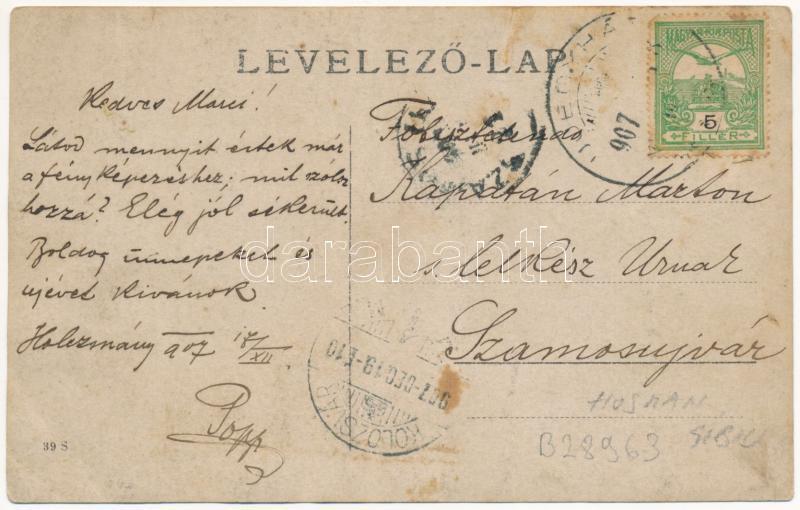 LEVELEZŐ-LAP
MAGYAR KIR. POSTA
5
FILLÉR
907
Kedves Marci!
Látod mennyit értek már
a fényképezéshez; mit szólsz
hozzá? Elég jól sikerült.
Boldog ünnepeket és
ujévet kivánok
Holczmány 907 18/XII
Popp
39 S
Főtisztelendő
Kapatán Marton
s. lelkész Urnak
Szamosujvár
KOLOZSVÁR
907 DEC 19
HOSMAN
B28963
SIBIU
darabanth